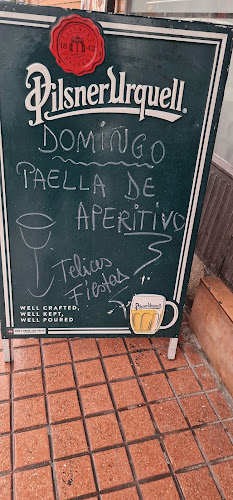 1842
Pilsner Urquell
DOMINGO
PAELLA DE
APERITIVO
Felices
Fiestas
WELL CRAFTED,
WELL KEPT,
WELL POURED